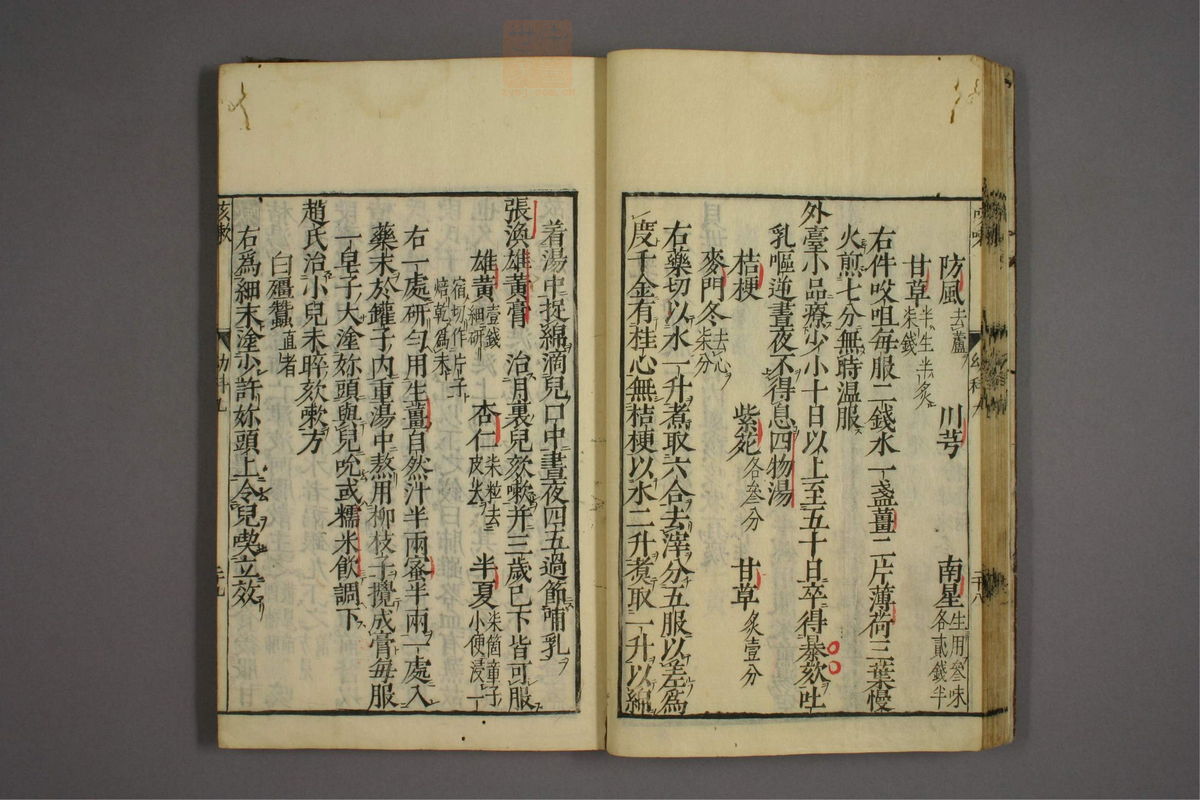 防風去蘆 川芎 南星生用叄味各貳錢半
甘草半生半炙柒錢
右件㕮咀每服二錢水一盞薑二片薄荷三葉慢
火煎七分無時温服
外臺小品療少小十日以上至五十日卒得暴欬吐
乳嘔逆晝夜不得息四物湯
桔梗 紫菀各叄分 甘草炙壹分
麥門冬去心柒分
右藥切以水一升煮取六合去滓分五服以差爲
度千金有桂心無桔梗以水二升煮取一升以綿
着湯中捉綿滴兒口中晝夜四五過節哺乳
張渙雄黃膏 治月裏兒欬嗽并三歲已下皆可服
雄黃壹錢細研 杏仁柒粒去皮尖 半夏柒箇童子小便浸一
宿切作片子焙乾爲末
右一處研勻用生薑自然汁半兩蜜半兩一處入
藥末於鑵子內重湯中熬用柳枝子攪成膏每服
一皂子大塗妳頭與兒吮或糯米飲調下
趙氏治小兒未晬欬嗽方
白殭蠶直者
右爲細末塗少許妳頭上令兒喫立效
幼科九